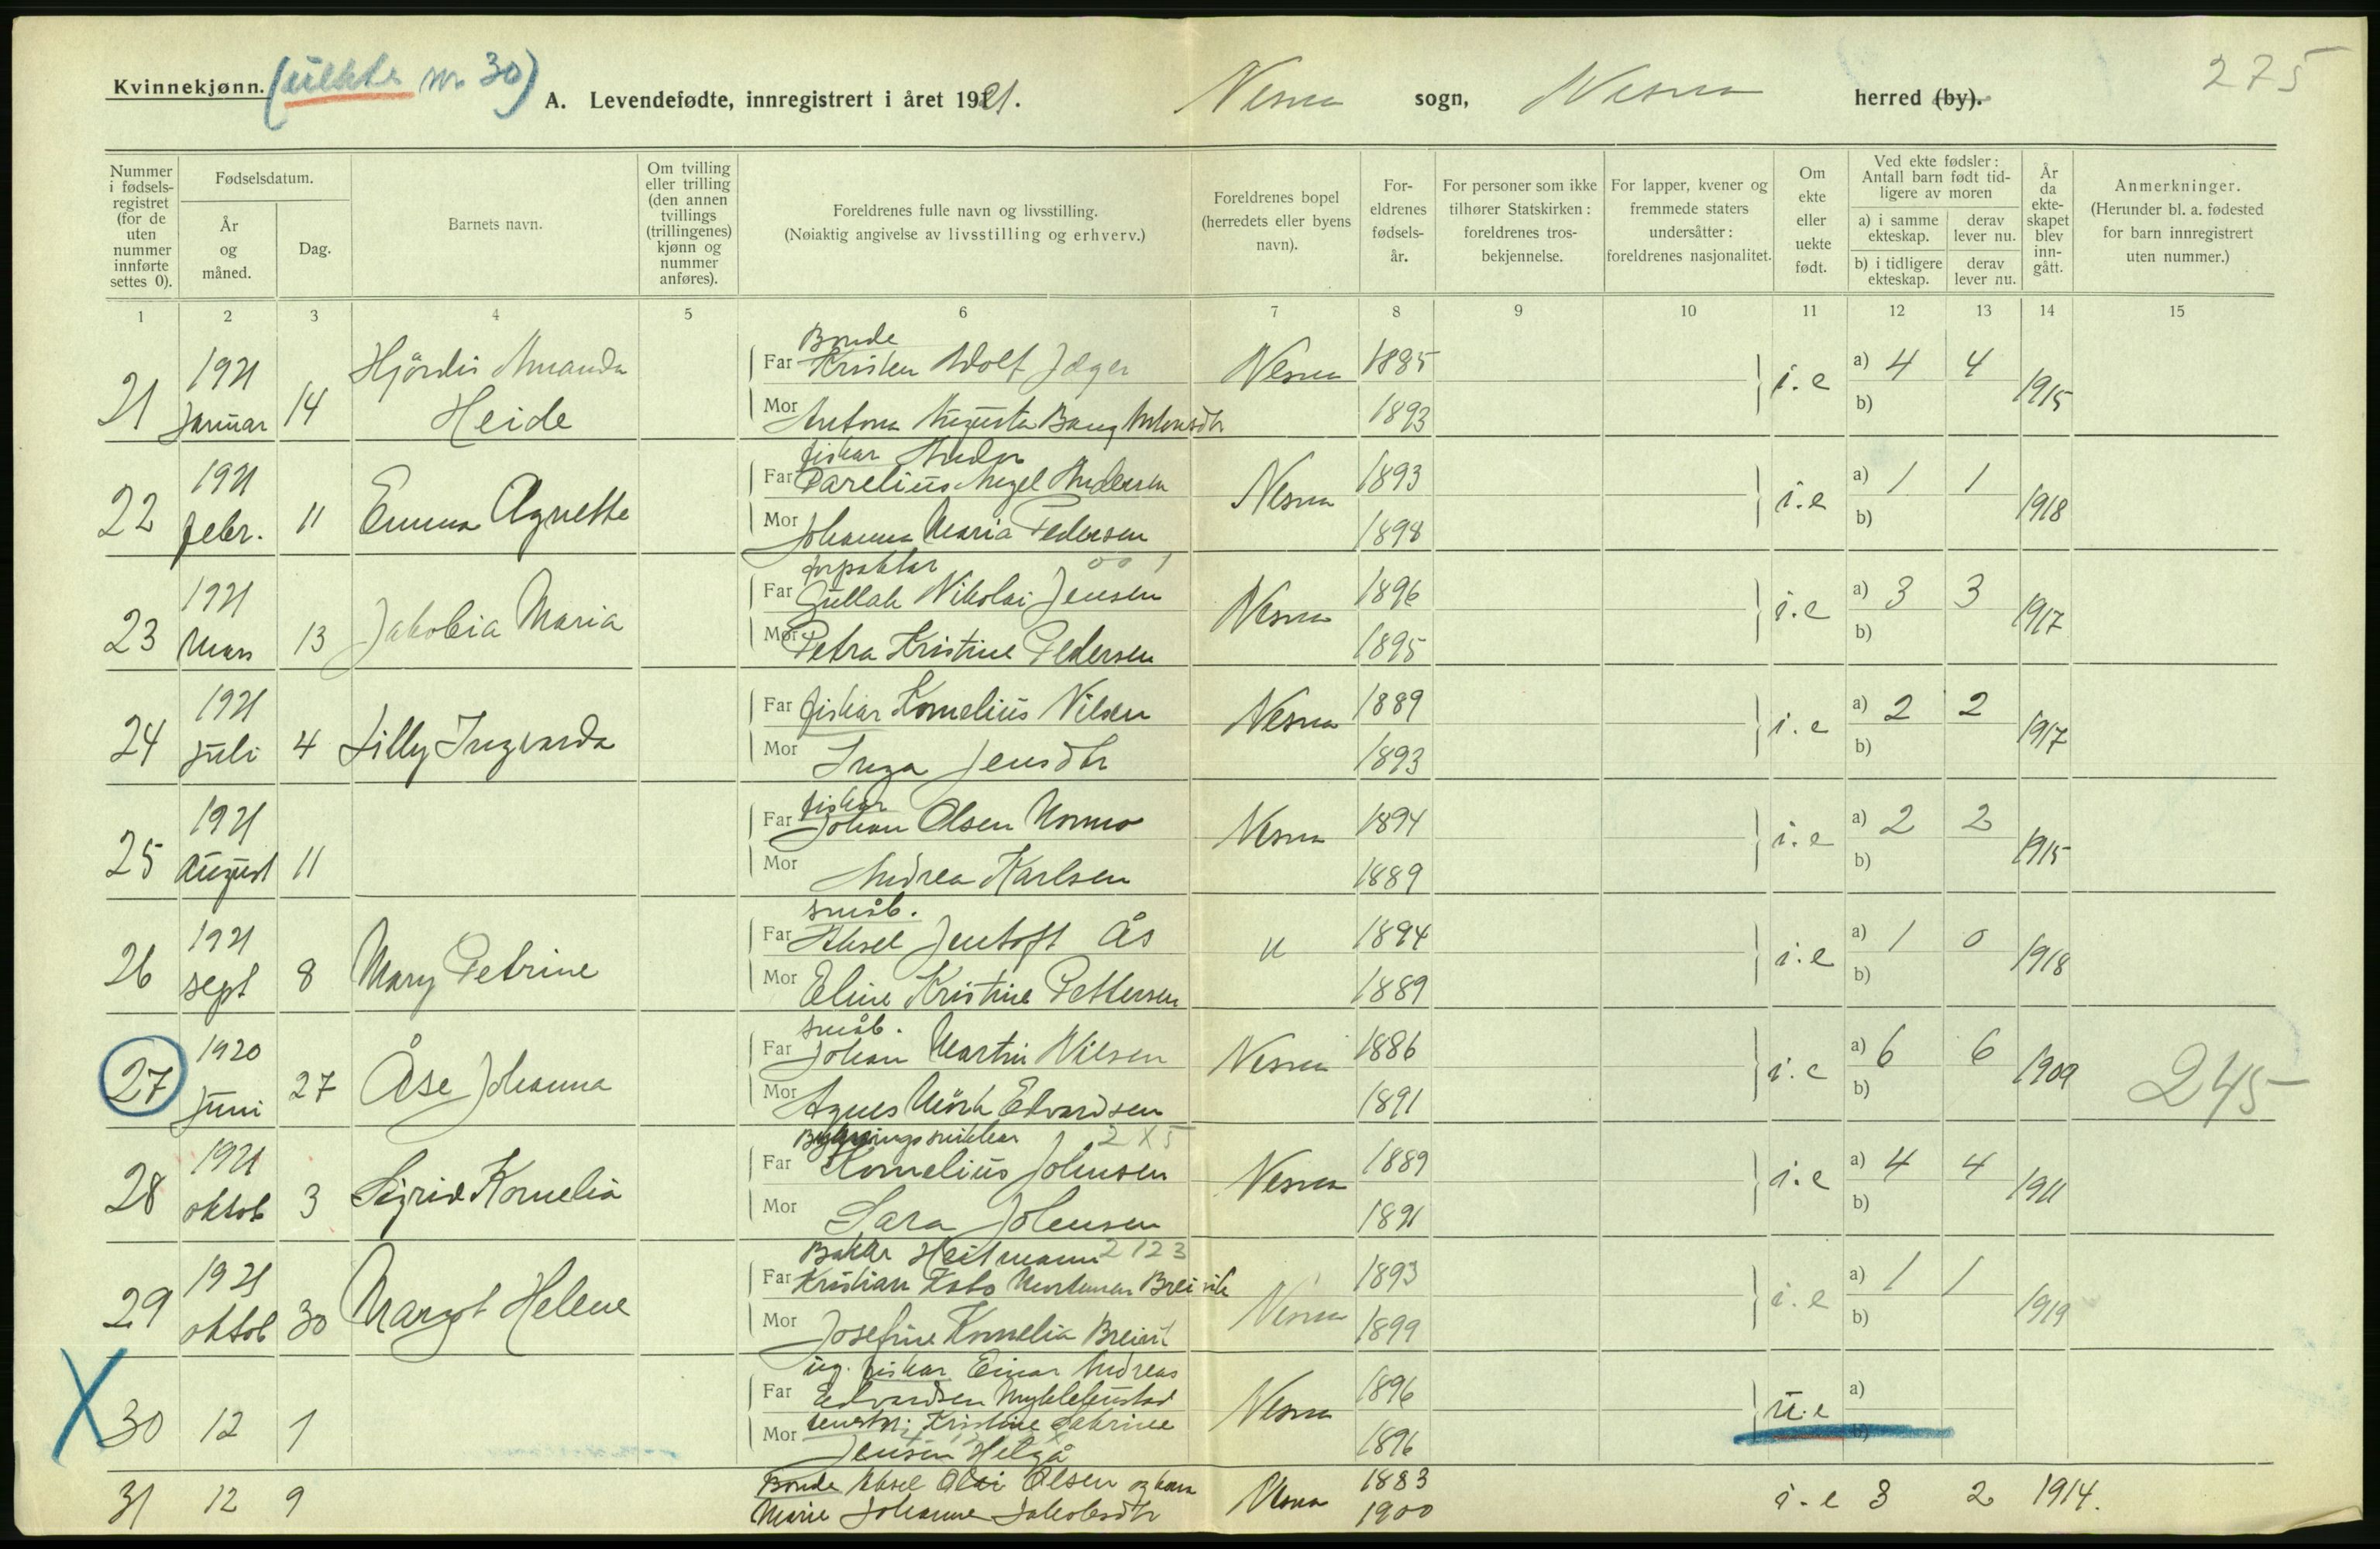 Kvinnekjønn. (uekte nr 30)
A. Levendefødte, innregistrert i året 1921.
Nesna sogn, Nesna herred (by).
275
Nummer i fødsels-registret (for de uten nummer innførte settes 0).
Fødselsdatum.
År og måned.
Dag.
Barnets navn.
Om tvilling eller trilling (den annen tvillings (trillingenes) kjønn og nummer anføres).
Foreldrenes fulle navn og livsstilling.
(Nøiaktig angivelse av livsstilling og erhverv.)
Foreldrenes bopel (herredets eller byens navn).
For-eldrenes fødsels-år.
For personer som ikke tilhører Statskirken: foreldrenes tros-bekjennelse.
For lapper, kvener og fremmede staters undersåtter: foreldrenes nasjonalitet.
Om ekte eller uekte født.
Ved ekte fødsler: Antall barn født tid-ligere av moren
a) i samme ekteskap. derav lever nu.
b) i tidligere ekteskap. derav lever nu.
År da ekte-skapet blev inn-gått.
Anmerkninger.
(Herunder bl. a. fødested for barn innregistrert uten nummer.)
1 2 3 4 5 6 7 8 9 10 11 12 13 14 15
Bonde
1921 Hjördis Amanda Far Kristen Adolf Jæger Nesna 1885 i.e a) 4 4 1915
21 Januar 14 Heide Mor Antona Augusta Bang Antonsdtr 1893 b)
fiskar Andor
1921 Far Parelius Angel Andersen Nesna 1893 i.e a) 1 1 1918
22 febr. 11 Emma Agnette Mor Johanna Maria Pedersen 1898 b)
forpaktar 00 1
1921 Far Gullak Nikolai Jensen Nesna 1896 i.e a) 3 3 1917
23 Mars 13 Jakobia Maria Mor Petra Kristine Pedersen 1895 b)
1921 Far fiskar Kornelius Nilsen Nesna 1889 i.e a) 2 2 1917
24 juli 4 Lilly Ingvarda Mor Inga Jensdtr 1893 b)
fiskar
1921 Far Johan Olsen Nesna 1894 i.e a) 2 2 1915
25 August 11 Mor Andrea Karlsen 1889 b)
småb.
1921 Far Aksel Jentoft Ås " 1894 i.e a) 1 0 1918
26 sept 8 Mary Petrine Mor Eline Kristine Pettersen 1889 b)
småb.
1920 Far Johan Martin Nilsen Nesna 1886 i.e a) 6 6 1909
27 Juni 27 Åse Johanna Mor Agnes Mörk Edvardsen 1891 b) 245
Bygningssnikkar 2 X 5
1921 Far Kornelius Johnsen Nesna 1889 i.e a) 4 4 1911
28 oktob 3 Sigrid Kornelia Mor Sara Johnsen 1891 b)
Bakar Heitmann 2 12 3
1921 Far Kristian Breivik Nesna 1893 i.e a) 1 1 1919
29 oktob 30 Margot Helene Mor Josefine Kornelia Breivik 1899 b)
ug. fiskar Einar Andreas
Far Edvardsen Myklebustad Nesna 1896 u.e a)
30 12 1 Mor Kristine
Jensen Helgå 1896 b)
31 12 9 Bonde Aksel Olai Olsen og kona Nesna 1883 i.e 3 2 1914.
Marie Johanne Jakobsdtr 1900